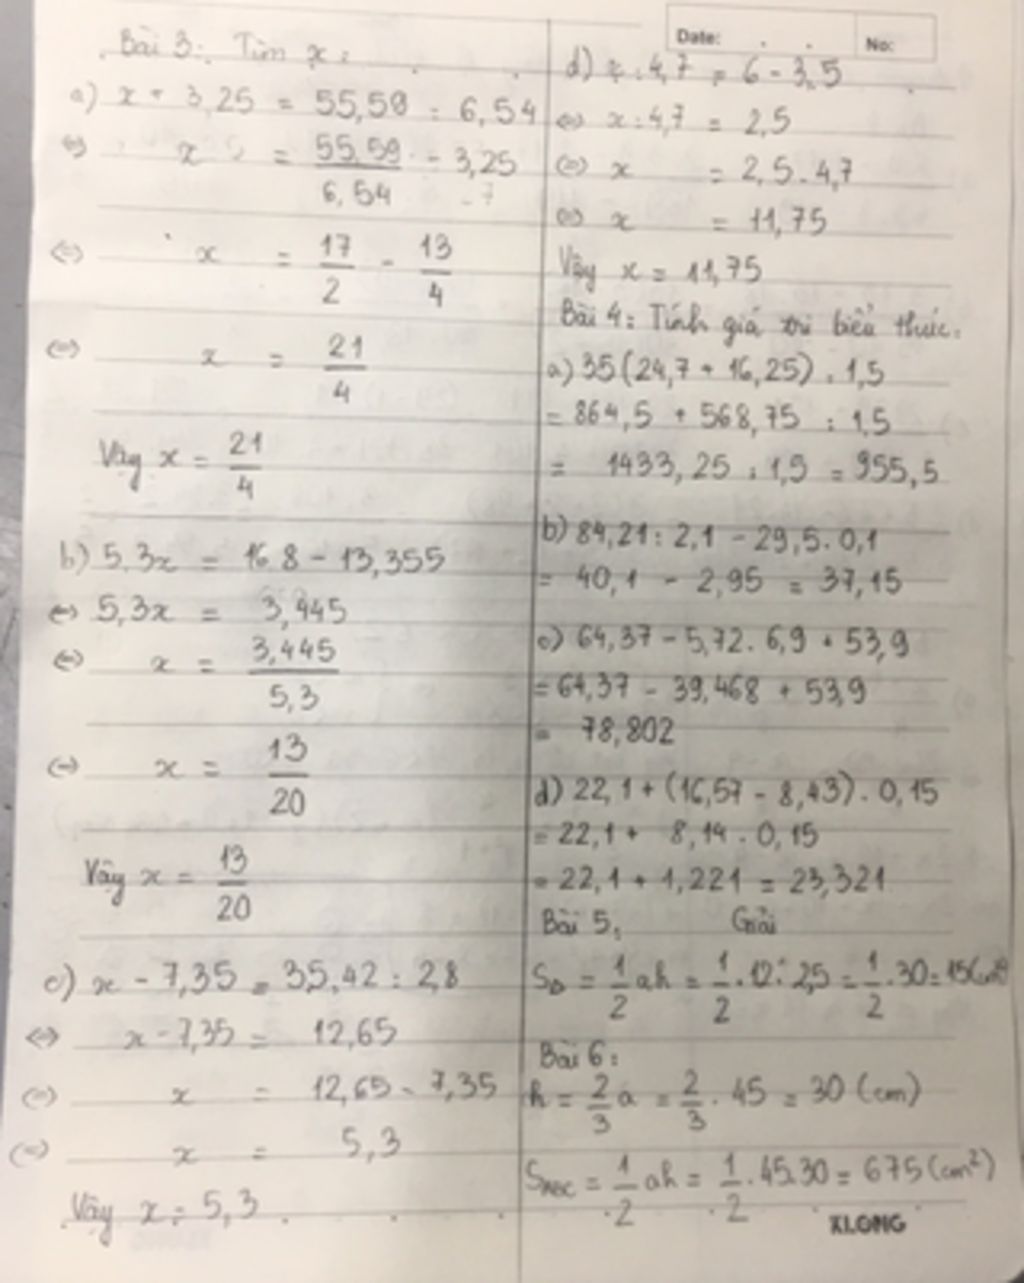 Bài 3: Tìm x:
a) x + 3,25 = 55,59 : 6,54
<=> x = 55,59/6,54 - 3,25
<=> x = 17/2 - 13/4
<=> x = 21/4
Vậy x = 21/4
b) 5,3x = 16,8 - 13,355
<=> 5,3x = 3,445
<=> x = 3,445/5,3
<=> x = 13/20
Vậy x = 13/20
c) x - 7,35 = 35,42 : 2,8
<=> x - 7,35 = 12,65
<=> x = 12,65 - 7,35
<=> x = 5,3
Vậy x = 5,3
Date: No:
d) x : 4,7 = 6 - 3,5
<=> x : 4,7 = 2,5
<=> x = 2,5 . 4,7
<=> x = 11,75
Vậy x = 11,75
Bài 4: Tính giá trị biểu thức:
a) 35(24,7 + 16,25) : 1,5
= 864,5 + 568,75 : 1,5
= 1433,25 : 1,5 = 955,5
b) 84,21 : 2,1 - 29,5 . 0,1
= 40,1 - 2,95 = 37,15
c) 64,37 - 5,72 . 6,9 + 53,9
= 64,37 - 39,468 + 53,9
= 78,802
d) 22,1 + (16,57 - 8,43) . 0,15
= 22,1 + 8,14 . 0,15
= 22,1 + 1,221 = 23,321
Bài 5: Giải
SΔ = 1/2 ah = 1/2 . 12 . 2,5 = 1/2 . 30 = 15(cm²)
Bài 6:
h = 2/3 a = 2/3 . 45 = 30 (cm)
SABC = 1/2 ah = 1/2 . 45.30 = 675 (cm²)
KLONG